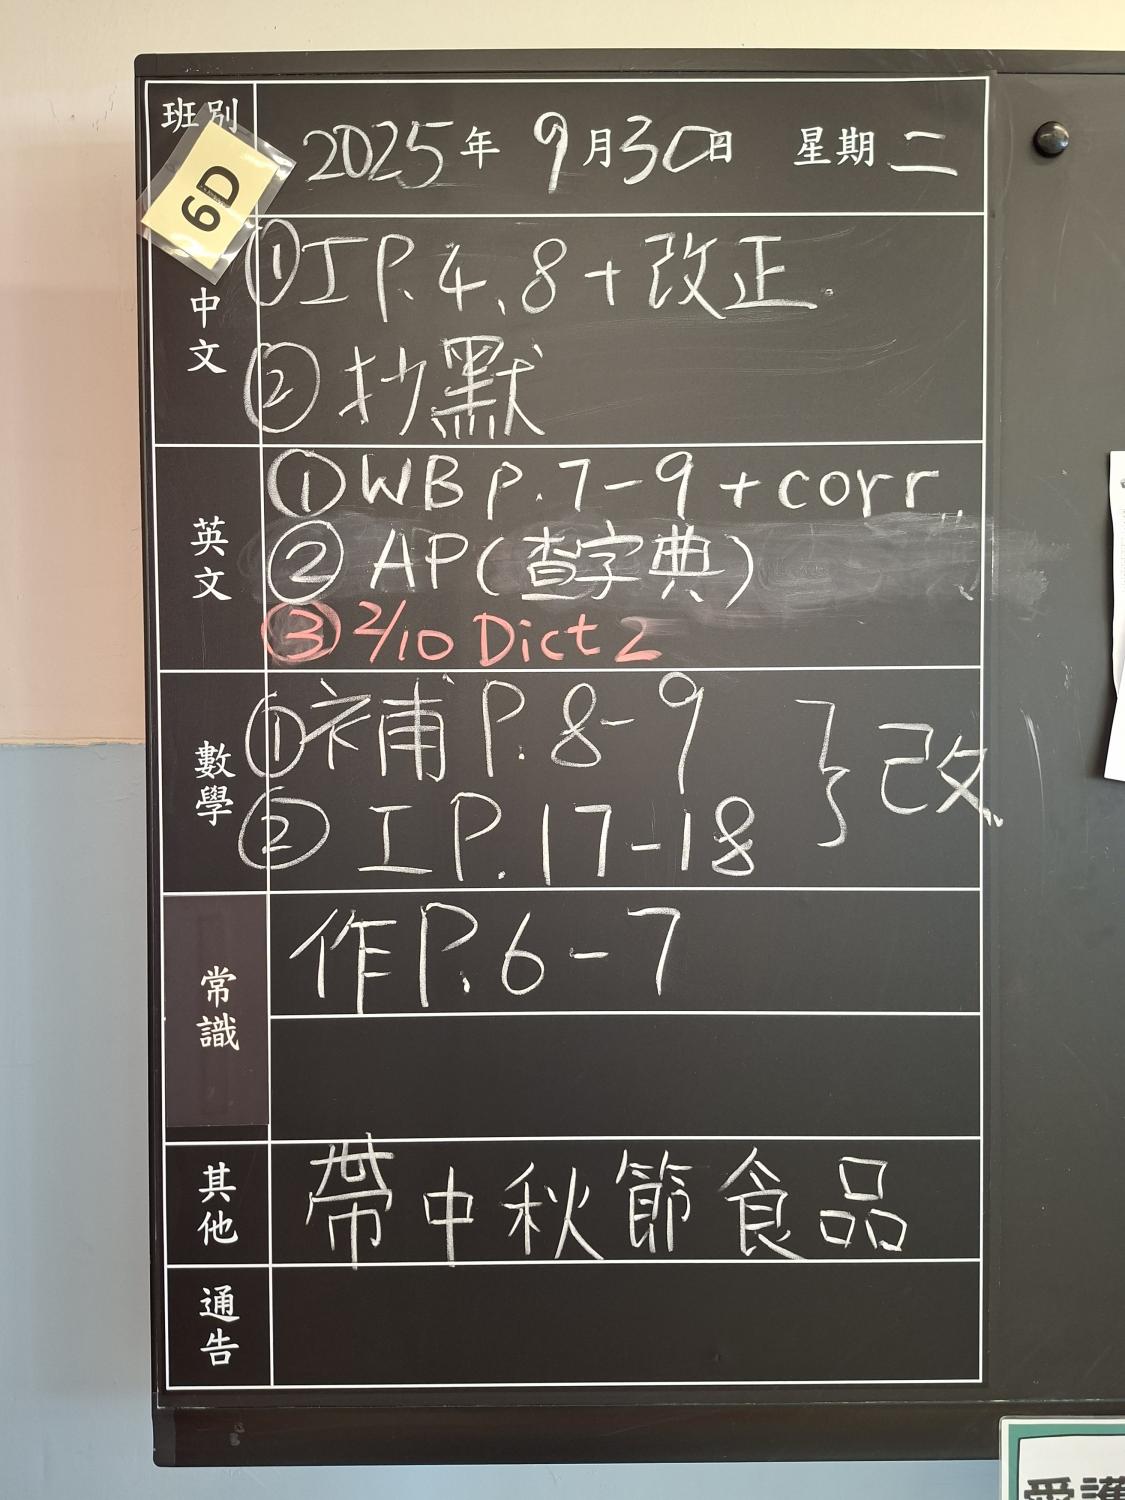 班別
6D
2025年 9月30日 星期二
中文
①工P.4,8+改正
②抄默
英文
①WB p.7-9+corr
②AP(查字典)
③2/10 Dict 2
數學
①補P.8-9 } 改
②工P.17-18
常識
作P.6-7
其他
帶中秋節食品
通告
愛護